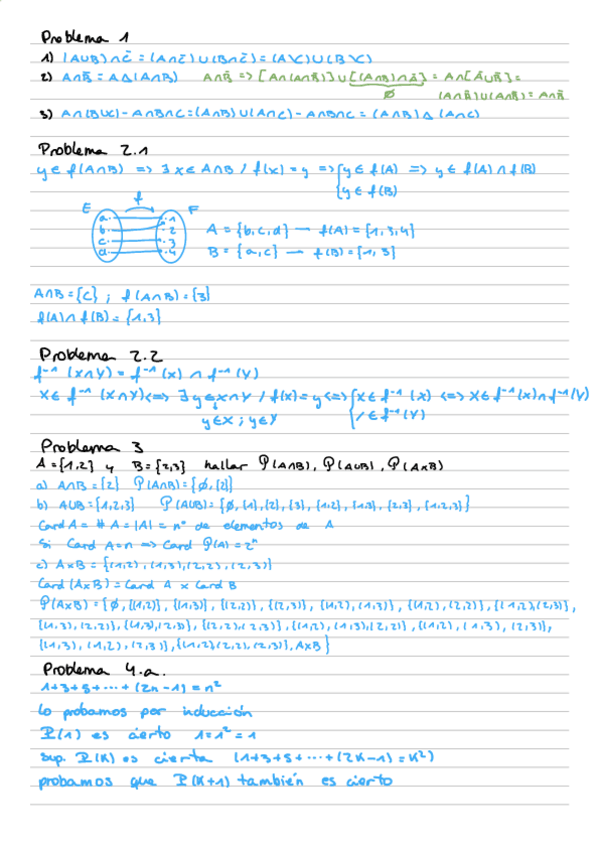 Problema 1
1) (A∪B)∩C̄ = (A∩C̄)∪(B∩C̄) = (A\C)∪(B\C)
2) A∩B̄ = A∆(A∩B) A∩B̄ => [A∩(A∩B̄)]∪[(A∩B)∩Ā] = A∩[Ā∪B̄] =
∅ (A∩Ā)∪(A∩B̄) = A∩B̄
3) A∩(B∪C) - A∩B∩C = (A∩B)∪(A∩C) - A∩B∩C = (A∩B)∆(A∩C)
Problema 2.1
y∈f(A∩B) => ∃x∈A∩B / f(x)=y => {y∈f(A) => y∈f(A)∩f(B)
{y∈f(B)
f
E F
a 1
b 2 A = {b,c,d} — f(A) = {1,3,4}
c 3 B = {a,c} — f(B) = {1,3}
d 4
A∩B = {c} ; f(A∩B) = {3}
f(A)∩f(B) = {1,3}
Problema 2.2
f⁻¹(X∩Y) = f⁻¹(X)∩f⁻¹(Y)
X∈f⁻¹(X∩Y) <=> ∃y∈X∩Y / f(x)=y <=> {X∈f⁻¹(X) <=> X∈f⁻¹(X)∩f⁻¹(Y)
y∈X ; y∈Y {∕∈f⁻¹(Y)
Problema 3
A = {1,2} y B = {2,3} hallar P(A∩B), P(A∪B), P(A×B)
a) A∩B = {2} P(A∩B) = {∅,{2}}
b) A∪B = {1,2,3} P(A∪B) = {∅,{1},{2},{3},{1,2},{1,3},{2,3},{1,2,3}}
Card A = # A = |A| = nº de elementos de A
Si Card A = n => Card P(A) = 2ⁿ
c) A×B = {(1,2),(1,3),(2,2),(2,3)}
Card (A×B) = Card A × Card B
P(A×B) = {∅,{(1,2)},{(1,3)},{(2,2)},{(2,3)},{(1,2),(1,3)},{(1,2),(2,2)},{(1,2),(2,3)},
{(1,3),(2,2)},{(1,3),(2,3)},{(2,2),(2,3)},{(1,2),(1,3),(2,2)},{(1,2),(1,3),(2,3)},
{(1,3),(1,2),(2,3)},{(1,2),(2,2),(2,3)},A×B}
Problema 4.a.
1+3+5+⋯+(2n-1) = n²
Lo probamos por inducción
P(1) es cierto 1 = 1² = 1
Sup. P(K) es cierta (1+3+5+⋯+(2K-1) = K²)
probamos que P(K+1) también es cierto